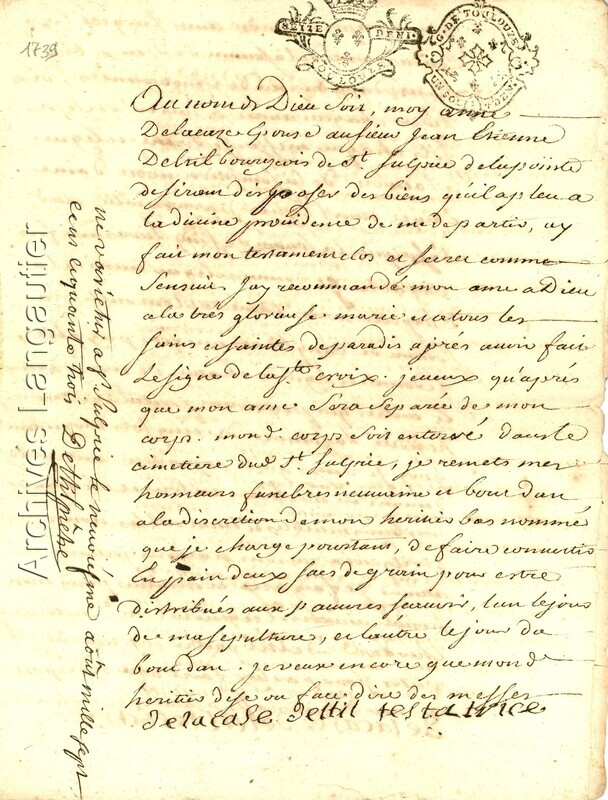 1739
SEIZE DENI.
TOULOUZE
G. DE TOULOUZE
Au nom de Dieu Soit, moy anne
Delacaze Epouse au sieur Jean Etienne
Deltil bourgeois de St. Sulpice delapointe
desirant disposer des biens qu'il a pleu a
la divine providence de me departir, ay
fait mon testament clos et secret comme
Sensuit. Jay recommandé mon ame a Dieu
ala trés glorieuse marie et a tous les
saints et saintes de paradis aprés avoir fait
le signe de la ste. croix. je veux qu'aprés
que mon ame Sera Separée de mon
corps. mond. corps soit enterré dans le
cimetiere dud. St. Sulpice, je remets mes
honneurs funebres neuvaine et bout dan
a la discretion de mon heritier bas nommé
que je charge pourtant, de faire convertir
En pain deux sacs de grain pour estre
distribués aux pauvres scavoir, lun le jour
de ma sepulture, et lautre le jour du
bout dan. je veux encore que mond.
heritier dise ou face dire des messes
delacase deltil testatrice
ne varietur a St. Sulpice le neuviesme août mille sept
cens cinquante trois
Archives Langautier